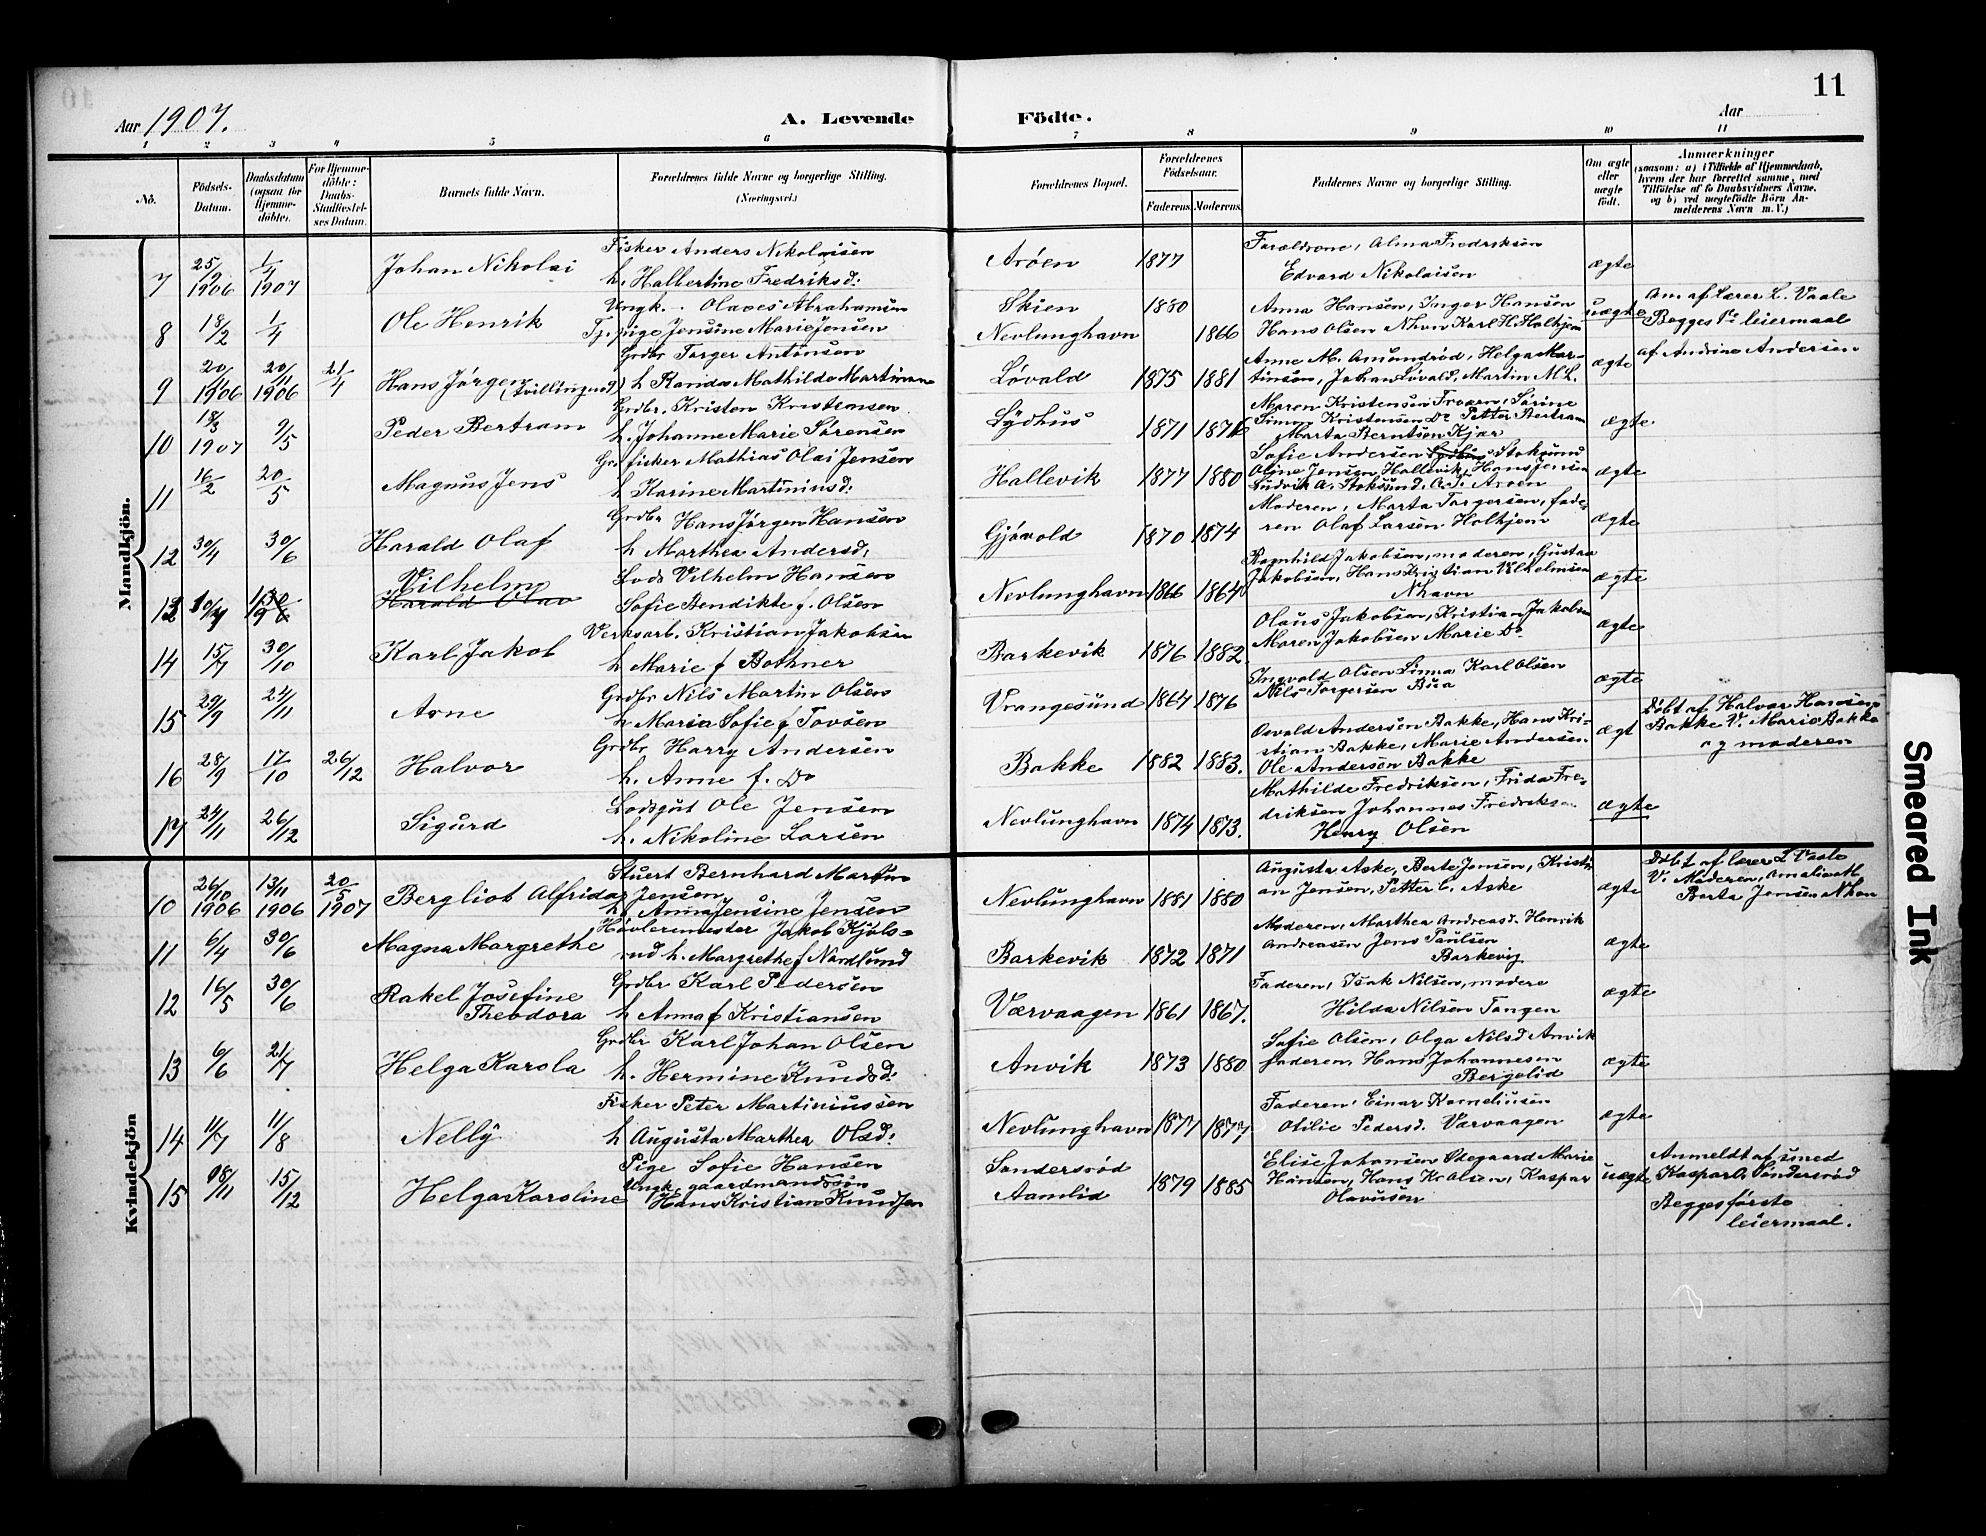 11
Aar 1907.
A. Levende
Födte.
Aar
1 2 3 4 5 6 7 8 9 10 11
No.
Födsels-Datum.
Daabsdatum (ogsaa for Hjemme-döbte).
For Hjemme-döbte: Daabs-Stadfæstel-ses Datum.
Barnets fulde Navn.
Forældrenes fulde Navne og borgerlige Stilling. (Næringsvei.)
Forældrenes Bopæl.
Forældrenes Födselsaar.
Faderens. Moderens.
Faddernes Navne og borgerlige Stilling.
Om ægte eller uægte födt.
Anmærkninger (saasom: a) i Tilfælde af Hjemmedaab, hvem der har forrettet samme, med Tilföielse af to Daabsvidners Navne, og b) ved uægtefödte Börn An-melderens Navn m. V.)
Mandkjön.
7 25/9 1906 1/4 1907 Johan Nikolai
Fisker Anders Nikolaisen
h. Halbertine Fredriksd:
Arøen 1877
Forældrene, Alma Fredriksen
Edvard Nikolaisen
ægte
8 18/2 1/4 Ole Henrik
Ungk. Olaves Abrahamsen
Tj. pige Jensine Marie Jensen
Skien 1880
Nevlunghavn 1866
Anna Hansen, Inger Hansen
Hans Olsen Nhavn Karl H. Holtjem
uægte
Anm. af lærer L. Vaale
Begges 1ste leiermaal
9 20/1 1906 20/11 1906 21/4 Hans Jørgen (tvillingsød)
Grdbr Torger Antonsen
h Randa Mathilde Martinsen
Løvald 1875 1881
Anne M. Amundrød, Helga Mar-
tinsen, Johan Løvald, Martin M. L.
ægte
af Andrine Andersen
10 18/3 1907 9/5 Peder Bertram
Grdbr. Kristen Kristensen
h. Johanne Marie Sørensen
Lydhus 1871 1876
Maren Kristensen Froen, Sørine
Simon Kristensen Do Petter Bertram
Marta Berntsen Kjær
ægte
11 16/2 20/5 Magnus Jens
Gr. fisker Mathias Olai Jensen
h Karine Martiniusd:
Hallevik 1877 1880
Sofie Andersen Stoksund
Oline Jensen, Hallevik, Hans Jensen
Ludvik A. Stoksund. A. T. Arøen
ægte
12 30/4 30/6 Harald Olaf
Grdbr Hans Jørgen Hansen
h Marthea Andersd.
Gjøvold 1870 1874
Moderen, Marta Torgersen, fade-
ren Olaf Larsen Holtjem
ægte
13 Vilhelm
Harald Olav
Lods Vilhelm Hansen
Sofie Bendikte f. Olsen
Nevlunghavn 1866 1864
Ragnhild Jakobsen, moderen, Gustav
Jakobsen, Hans Kristian Vilhelmsen
Nhavn
ægte
14 15/7 30/10 Karl Jakob
Verksarb. Kristian Jakobsen
h Marie f Bothner
Barkevik 1876 1882.
Olaus Jakobsen, Kristian Jakobsen
Maren Jakobsen Marie Do
ægte
15 29/9 24/11 Arne
Grdbr Nils Martin Olsen
h Maria Sofie f Tovsen
Vrangesund 1864 1876
Ingvald Olsen Linna Karl Olsen
Nils Torgersen Bua
ægte
16 28/9 17/10 26/12 Halvor
Grdbr Harry Andersen
h. Anne f. Do
Bakke 1882 1883.
Osvald Andersen Bakke, Hans Kri-
stian Bakke, Marie Andersen
Ole Andersen Bakke
ægt
Døbt af Halvor Hansen
Bakke V. Marie Bakke
og moderen
17 24/11 26/12 Sigurd
Lodsgut Ole Jensen
h. Nikoline Larsen
Nevlunghavn 1874 1873.
Mathilde Fredriksen, Frida Fre-
driksen Johannes Fredriksen
Henry Olsen
ægte
Kvindekjön
10 26/10 1906 13/11 1906 20/5 1907 Bergliot Alfrida
Stuert Bernhard Martin
Jensen
h. Anna Jensine Jensen
Nevlunghavn 1881 1880
Augusta Aske, Berte Jensen, Kristi-
an Jensen, Petter C. Aske
ægte
Døbt af lærer L Vaale
V. Moderen, Amalie
Berta Jensen Nhavn
11 6/4 30/6 Magna Margrethe
Høvlermester Jakob Kjøls-
rud h. Margrethe f Nordlund
Barkevik 1872 1871
Moderen, Marthea Andreasd. Henrik
Andreasen Jens Paulsen
Barkevig
ægte
12 16/5 30/6 Rakel Josefine
Theodora
Grdbr Karl Pedersen
h Anna f Kristiansen
Værvaagen 1861 1867.
Faderen, Isak Nilsen, modere
Hilda Nilsen Tangen
ægte
13 6/6 21/7 Helga Karola
Grdbr Karl Johan Olsen
h. Hermine Knudsd:
Anvik 1873 1880
Sofie Olsen, Olga Nilsd Anvik
faderen, Hans Johannesen
Bergelid
ægte
14 11/7 11/8 Nelly
Fisker Peter Martiniussen
h Augusta Marthea Olsd:
Nevlunghavn 1877 1877
Faderen, Einar Korneliusen
Otilie Pedersd. Værvaagen
ægte
15 18/11 15/12 Helga Karoline
Pige Sofie Hansen
Ungk. gaardmandssøn
Hans Kristian Knudsen
Søndersrød
Aamlid 1879 1885
Elise Johansen Ødegaard Marie
Hansen, Hans Kr. Olsen, Kaspar
Olavusen
uægte
Anmeldt af smed
Kaspar O. Søndersrød
Begges første
leiermaal.
Smeared Ink